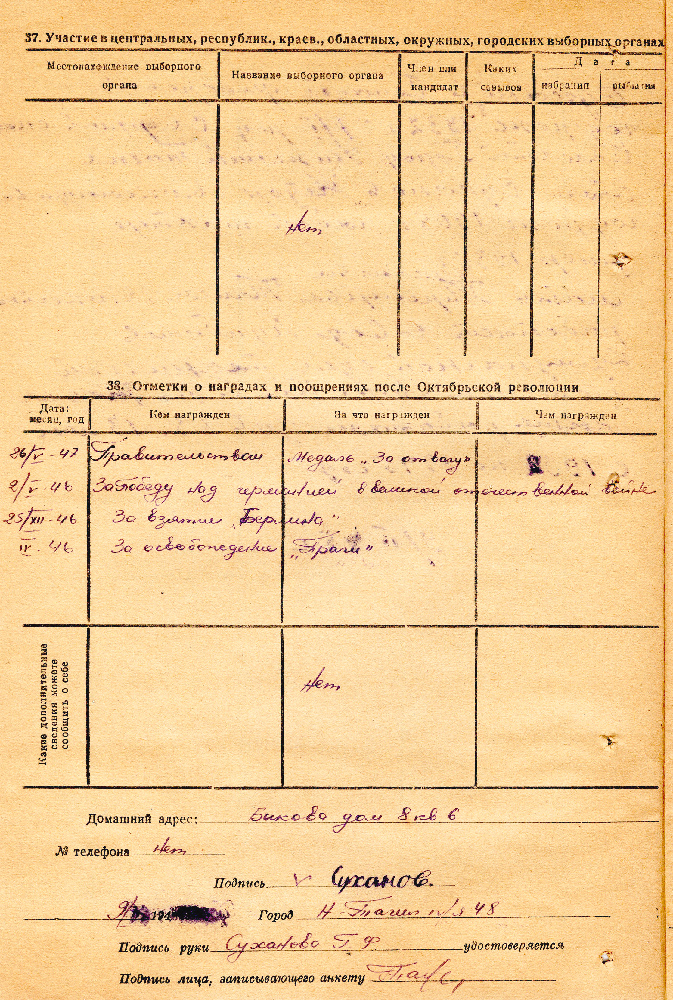 37. Участие в центральных, республик., краев., областных, окружных, городских выборных органах
Местонахождение выборного органа
Название выборного органа
Член или кандидат
Каких созывов
Дата
избрания
выбытия
Нет
38. Отметки о наградах и поощрениях после Октябрьской революции
Дата: месяц, год
Кем награжден
За что награжден
Чем награжден
26/V-47 Правительством Медаль „За отвагу"
2/V-46 За Победу над германией в великой отечественной войне
25/XII-46 За взятие „Берлина"
IV-46 За освобождение „Праги"
Какие дополнительные сведения можете сообщить о себе
Нет
Домашний адрес: Быкова дом 8 кв 6
№ телефона Нет
Подпись Суханов.
Город Н-Тагил 48
Подпись руки Суханова Г. Ф удостоверяется
Подпись лица, записывающего анкету